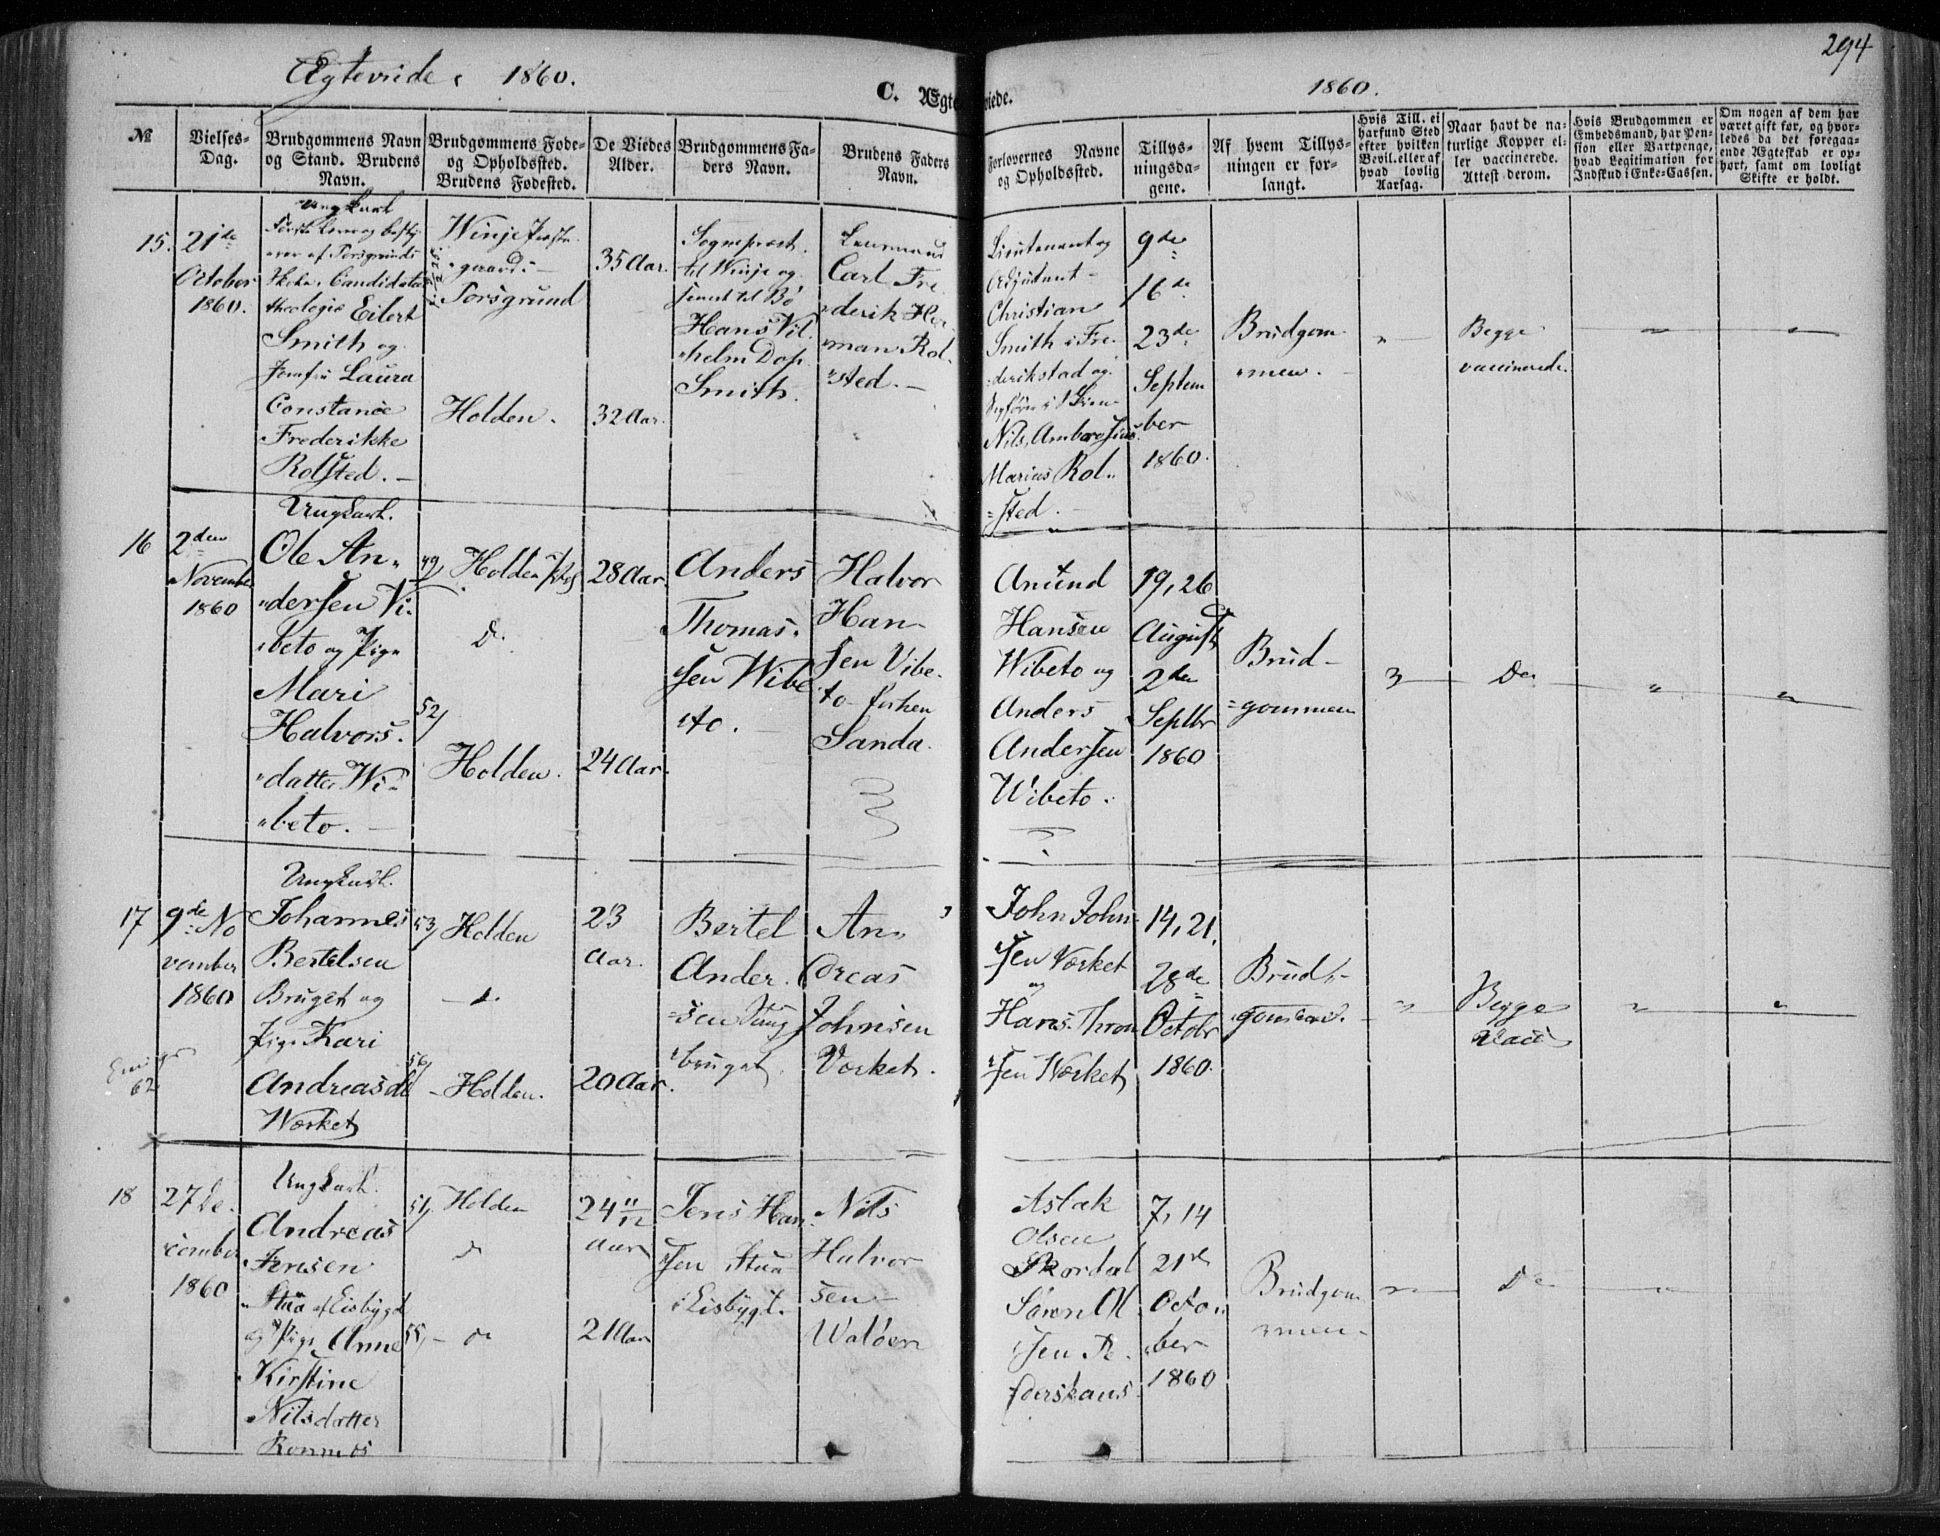 Ægteviede, 1860.
C. Ægteviede.
1860.
294
№
Vielses-
Dag.
Brudgommens Navn
og Stand. Brudens
Navn.
Brudgommens Føde-
og Opholdssted.
Brudens Fødested.
De Viedes
Alder.
Brudgommens Fa-
ders Navn.
Brudens Faders
Navn.
Forlovernes Navne
og Opholdssted.
Tillys-
ningsda-
gene.
Af hvem Tillys-
ningen er for-
langt.
Hvis Till. ei
har fund Sted
efter hvilken
Bevil. eller af
hvad lovlig
Aarsag.
Naar havt de na-
turlige Kopper el-
ler vaccinerede.
Attest derom.
Hvis Brudgommen er
Embedsmand, har Pen-
sion eller Vartpenge,
hvad Legitimation for
Indskud i Enke-Cassen.
Om nogen af dem har
været gift før, og hvor-
ledes da det foregaa-
ende Ægteskab er op-
hørt, samt om lovligt
Skifte er holdt.
15.
21de
October
1860.
Ungkarl
af Porsgrunds
Skole, Candidatus
theologiæ Eilert
Smith og
Jomfru Laura
Constance
Frederikke
Rolsted. -
Winje Præste-
gaard -
Porsgrund
Holden.
35 Aar.
32 Aar.
Sognepræst
til Winje og
senest til Bö
Hans Vil
helm Dop
Smith.
Lensmand
Carl Fre
derik Her
man Rol
sted. -
Lieutenant og
Adjutant -
Christian
Smith i Fre
derikstad og
Nils Ambrosius
Marius Rol
sted.
9de
16de
23de
Septem
ber
1860.
Brudgom
men. -
"
Begge
vaccinerede.
"
"
16
2den
November
1860
Ungkarl.
Ole An
dersen Vi
beto og Pige
Mari
Halvors.
datter Wi
beto. -
49/
52/
Holden
Do
Holden.
28 Aar.
24 Aar.
Anders
Thomas
sen Wibe
to.
Halvor
Han
sen Vibe
to forhen
Sanda.
Anund
Hansen
Wibeto og
Anders
Andersen
Wibeto.
19, 26
August
2den
Septbr
1860
Brud
gommen
"
Do
"
"
17
9de No
vember
1860
62
Ungkarl.
Johannes
Bertelsen
Bruget og
Pige Kari
Andreasdr
Wærket
53/
56/
Holden
- do
- Holden.
23
Aar.
20 Aar.
Bertel
Ander
sen
bruget.
An
dreas
Johnsen
Værket.
John John
sen Værket
og
Hans Thron
sen Wærket
14, 21.
28de
Octobr
1860.
Brud
gommen.
"
Begge
Vacc
"
"
18
27 De
cember
1860
Ungkarl.
Andreas
Jensen
Stua af Eisbygd
og Pige Anne
Kirstine
Nilsdatter
Romnes
51/
55/
Holden
do
- do
24 11/12
Aar
21 Aar
Jens Han
sen Stua
i Eisbygt.
Nils
Halvor
sen
Waloen
Aslak
Olsen
Skordal
Søren Ol
sen
7, 14
21de
Octo
ber
1860
Brudgom
men.
"
Do
"